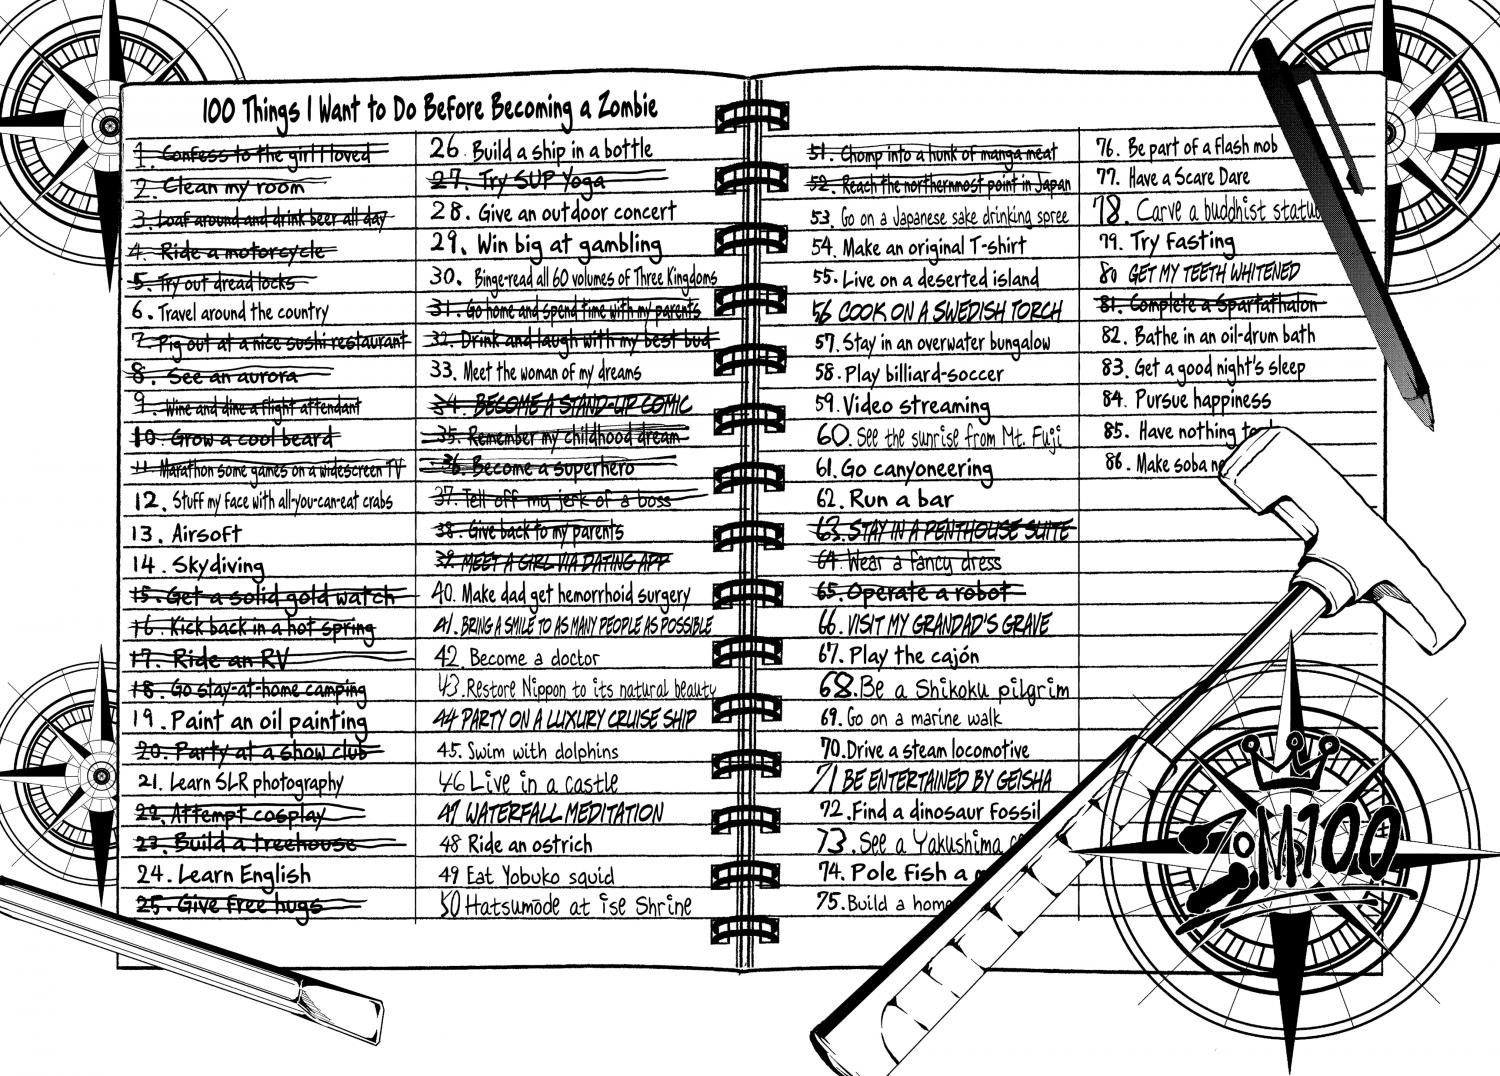 100 Things I Want to Do Before Becoming a Zombie
1. Confess to the girl I loved
2. Clean my room
3. Loaf around and drink beer all day
4. Ride a motorcycle
5. Try out dreadlocks
6. Travel around the country
7. Pig out at a nice sushi restaurant
8. See an aurora
9. Wine and dine a flight attendant
10. Grow a cool beard
11. Marathon some games on a widescreen TV
12. Stuff my face with all-you-can-eat crabs
13. Airsoft
14. Skydiving
15. Get a solid gold watch
16. Kick back in a hot spring
17. Ride an RV
18. Go stay-at-home camping
19. Paint an oil painting
20. Party at a show club
21. Learn SLR photography
22. Attempt cosplay
23. Build a treehouse
24. Learn English
25. Give free hugs
26. Build a ship in a bottle
27. Try SUP Yoga
28. Give an outdoor concert
29. Win big at gambling
30. Binge-read all 60 volumes of Three Kingdoms
31. Go home and spend time with my parents
32. Drink and laugh with my best bud
33. Meet the woman of my dreams
34. BECOME A STAND-UP COMIC
35. Remember my childhood dream
36. Become a superhero
37. Tell off my jerk of a boss
38. Give back to my parents
39. MEET A GIRL VIA DATING APP
40. Make dad get hemorrhoid surgery
41. BRING A SMILE TO AS MANY PEOPLE AS POSSIBLE
42. Become a doctor
43. Restore Nippon to its natural beauty
44 PARTY ON A LUXURY CRUISE SHIP
45. Swim with dolphins
46 Live in a castle
47 WATERFALL MEDITATION
48 Ride an ostrich
49 Eat Yobuko squid
50 Hatsumode at ise Shrine
51. Chomp into a hunk of manga meat
52. Reach the northernmost point in Japan
53. Go on a Japanese sake drinking spree
54. Make an original T-shirt
55. Live on a deserted island
56 COOK ON A SWEDISH TORCH
57. Stay in an overwater bungalow
58. Play billiard-soccer
59. Video streaming
60. See the sunrise from Mt. Fuji
61. Go canyoneering
62. Run a bar
63. STAY IN A PENTHOUSE SUITE
64. Wear a fancy dress
65. Operate a robot
66. VISIT MY GRANDAD'S GRAVE
67. Play the cajón
68. Be a Shikoku pilgrim
69. Go on a marine walk
70. Drive a steam locomotive
71 BE ENTERTAINED BY GEISHA
72. Find a dinosaur fossil
73. See a Yakushima
74. Pole fish a
75. Build a home
76. Be part of a flash mob
77. Have a Scare Dare
78. Carve a buddhist statu
79. Try fasting
80 GET MY TEETH WHITENED
81. Complete a Spartathalon
82. Bathe in an oil-drum bath
83. Get a good night's sleep
84. Pursue happiness
85. Have nothing to
86. Make soba
ZOM100